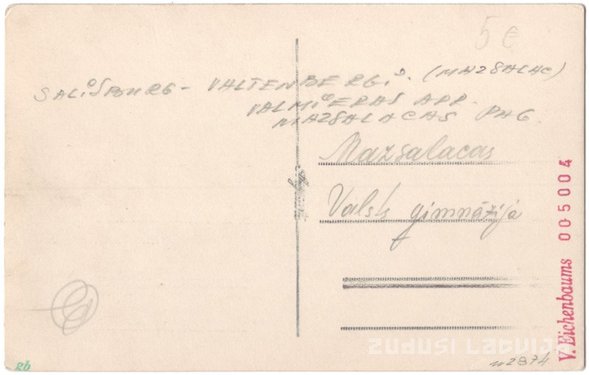 5€
SALISBURG - VALTENBERGI. (MAZSALAC)
VALMIERAS APR.
MAZSALACAS PAG.
Mazsalacas
Valsts ģimnāzija
V. Eichenbaums 005004
ZUDUSI LATVIJA
2874